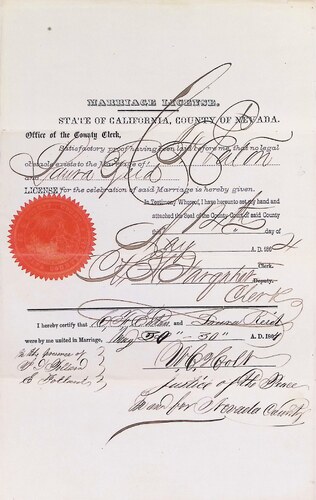 MARRIAGE LICENSE.
STATE OF CALIFORNIA, COUNTY OF NEVADA.
Office of the County Clerk,
Satisfactory proof having been laid before me, that no legal
obstacle exists to the Marriage of Eaton
and Laura Reid
LICENSE for the celebration of said Marriage is hereby given.
In Testimony Whereof, I have hereunto set my hand and
attached the Seal of the County Court of said County
this day of
May A. D. 1864
Clerk.
Deputy.
Clerk
I hereby certify that Eaton and Laura Reid
were by me united in Marriage, May A. D. 1864
In the presence of
W C Holt
Justice of the Peace
in and for Nevada County